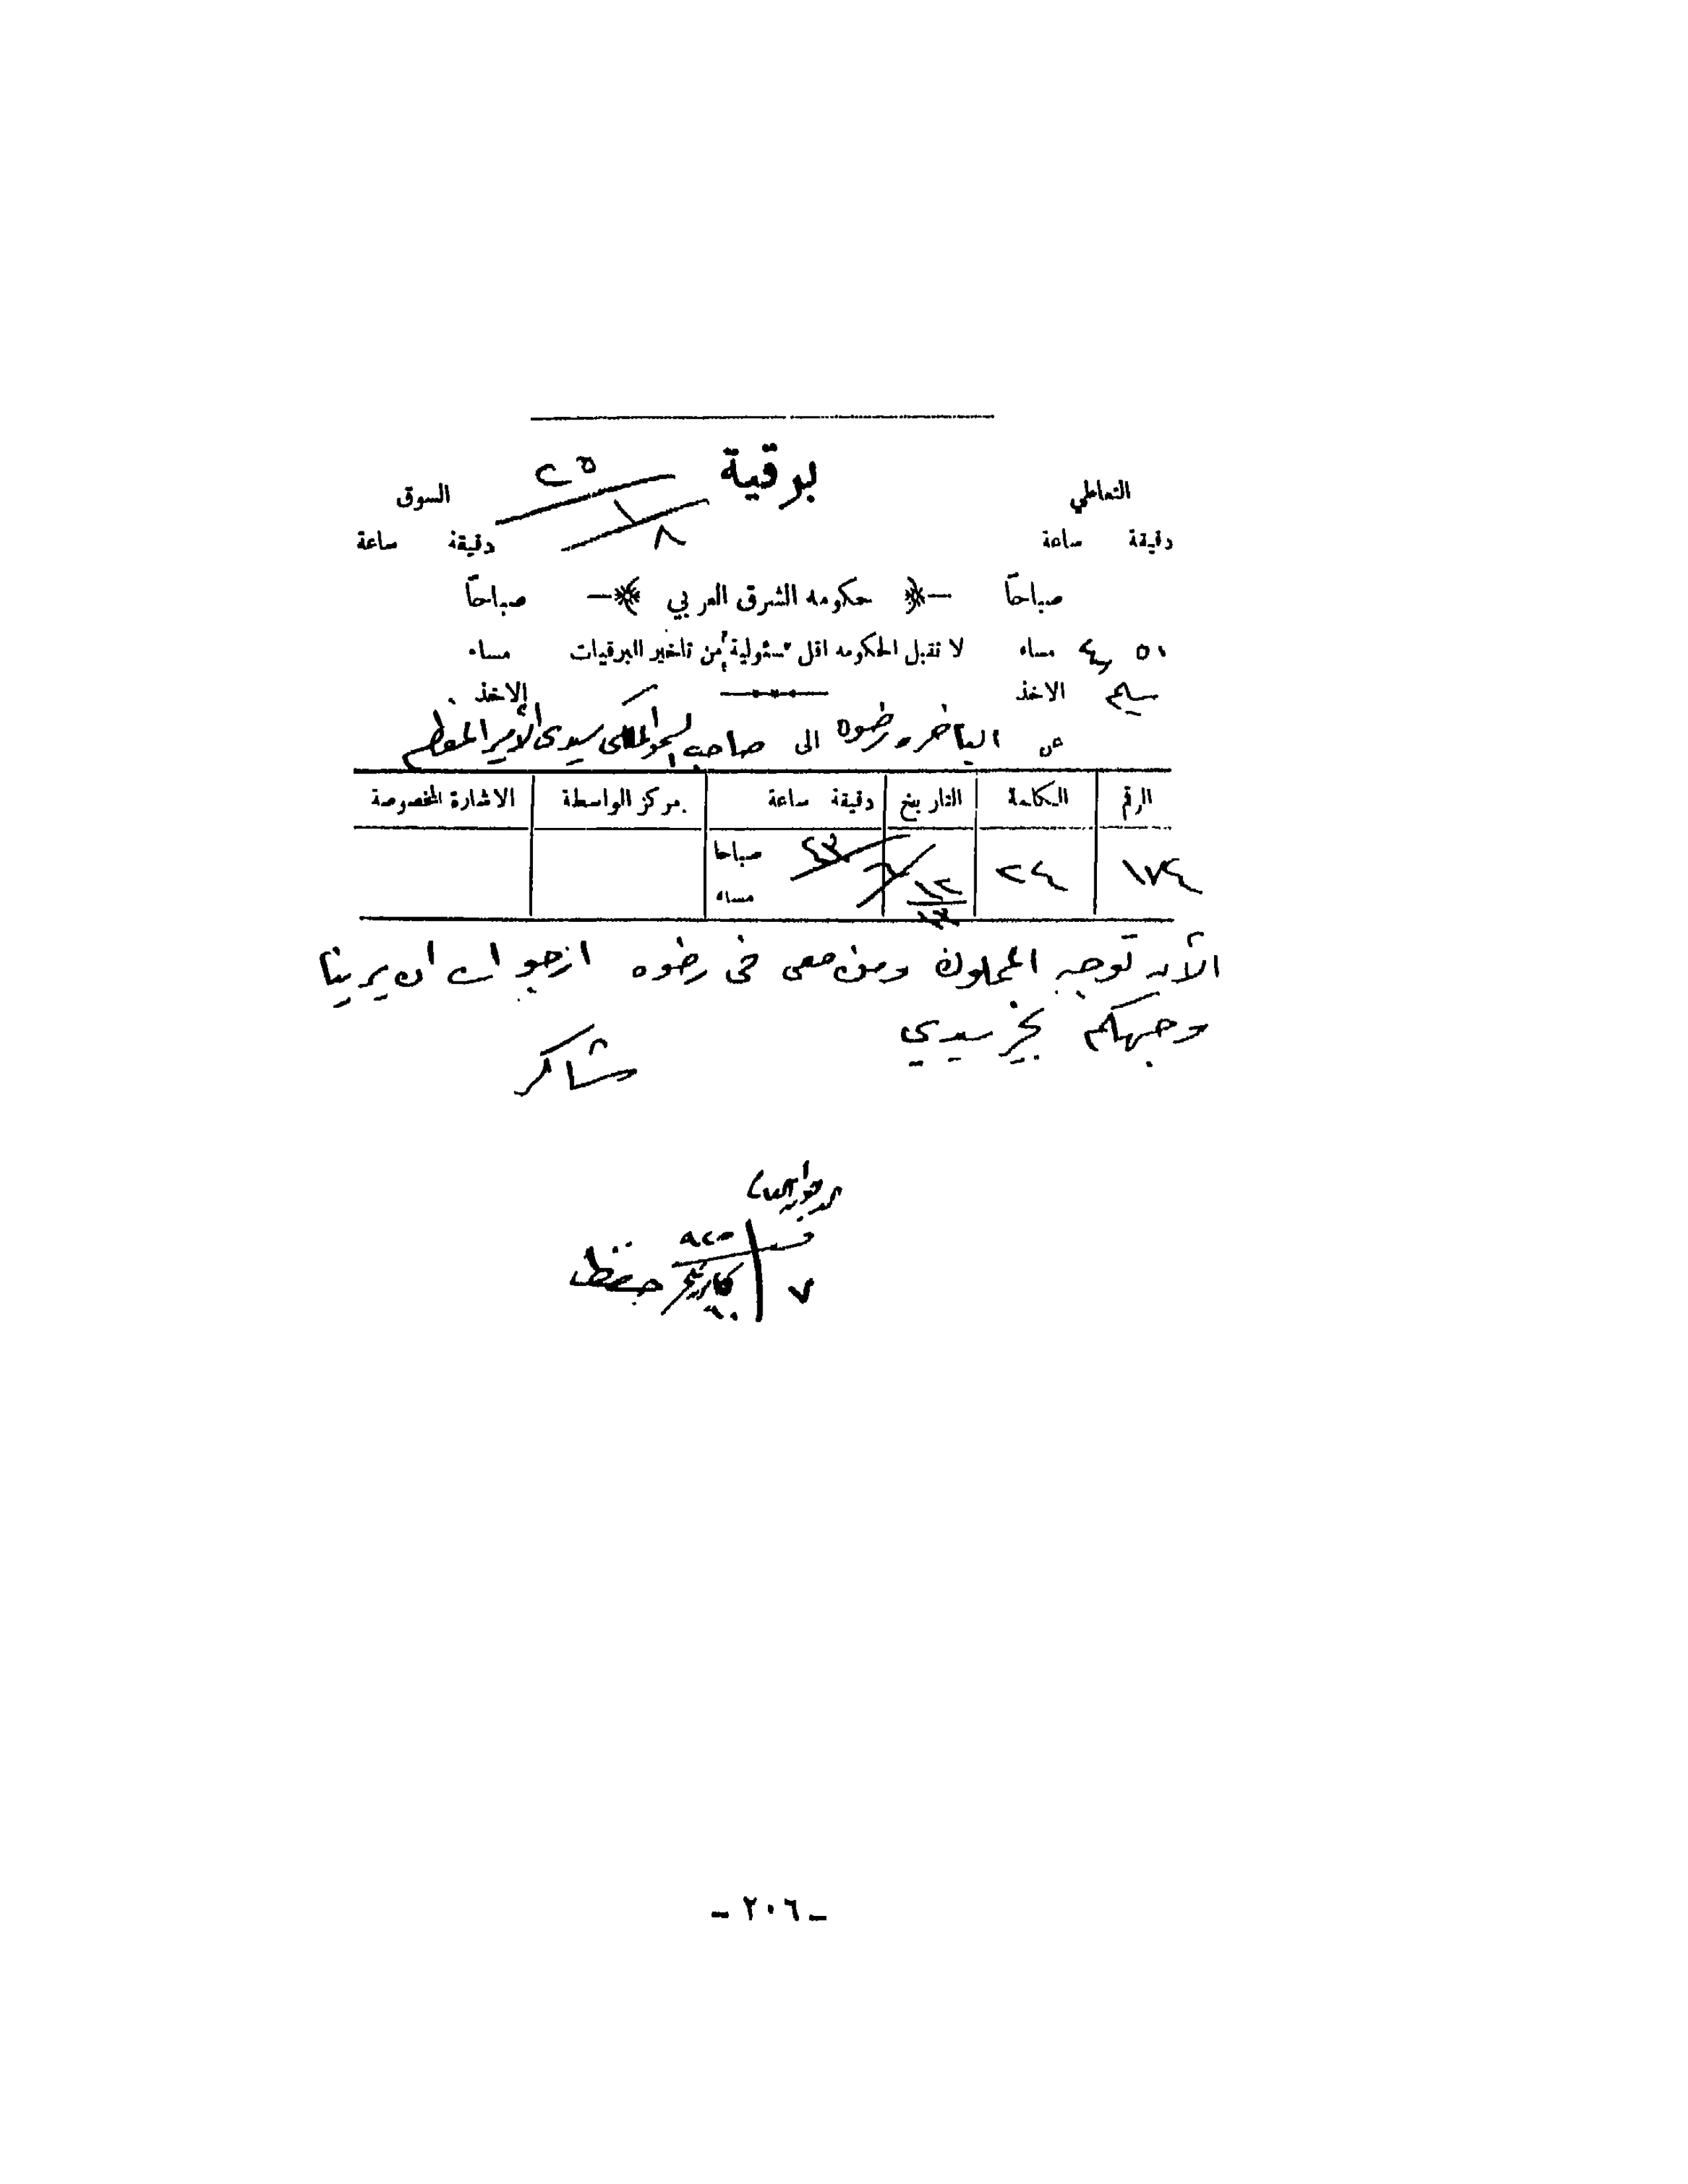 برقية ٢٥
١٨
التعاطي السوق
دقيقة ساعة دقيقة ساعة
صباحاً حكومه الشرق العربي صباحاً
٥١ ٤ مساء لا تقبل الحكومه اقل مسئولية من تأخير البرقيات مساء
سليم الاخذ الاخذ
عن الباخره رضوه الى صاحب السمو الملكي سيدي الأمير المعظم
الرقم الكلمة التاريخ دقيقة ساعة مركز الواسطة الاشارة المخصوصة
١٧٤ ٢٤ ١٢ ٢٣ صباحا
مساء
الآن توجه المملوك ومن معي في رضوه ارجو الله ان يرينا
وجهكم بخير سيدي
شاكر
٧
حفظ
- ٢٠٦ -